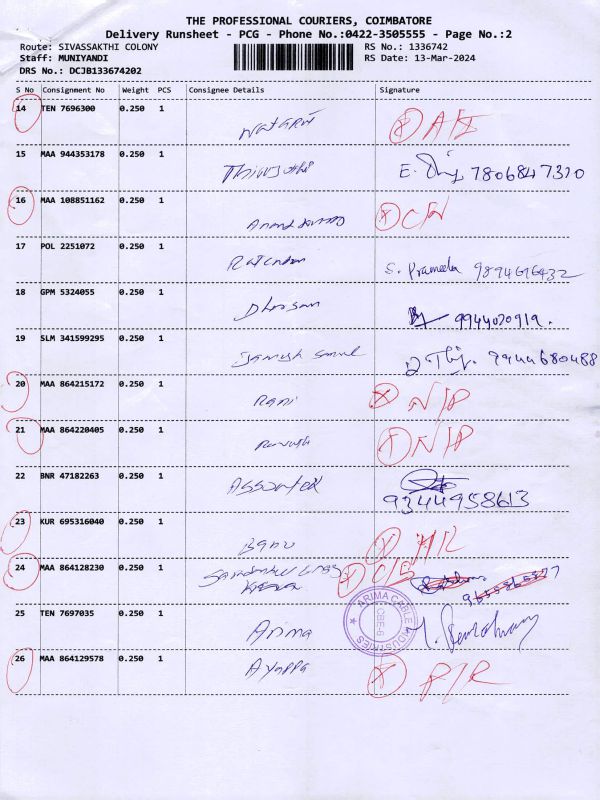 THE PROFESSIONAL COURIERS, COIMBATORE
Delivery Runsheet - PCG - Phone No.:0422-3505555 - Page No.:2
Route: SIVASSAKTHI COLONY RS No.: 1336742
Staff: MUNIYANDI RS Date: 13-Mar-2024
DRS No.: DCJB133674202
S No Consignment No Weight PCS Consignee Details Signature
14 TEN 7696300 0.250 1
15 MAA 944353178 0.250 1 7806847310
16 MAA 108851162 0.250 1
17 POL 2251072 0.250 1 S. Prameela 9894616432
18 GPM 5324055 0.250 1 9944020919.
19 SLM 341599295 0.250 1 9944680488
20 MAA 864215172 0.250 1 Rani N/P
21 MAA 864220405 0.250 1 N/P
22 BNR 47182263 0.250 1 9344958613
23 KUR 695316040 0.250 1 Banu
24 MAA 864128230 0.250 1
25 TEN 7697035 1 0.250 1 Arima ARIMA CABLE INDUSTRIES CBE-6
26 MAA 864129578 0.250 1 Ayappa